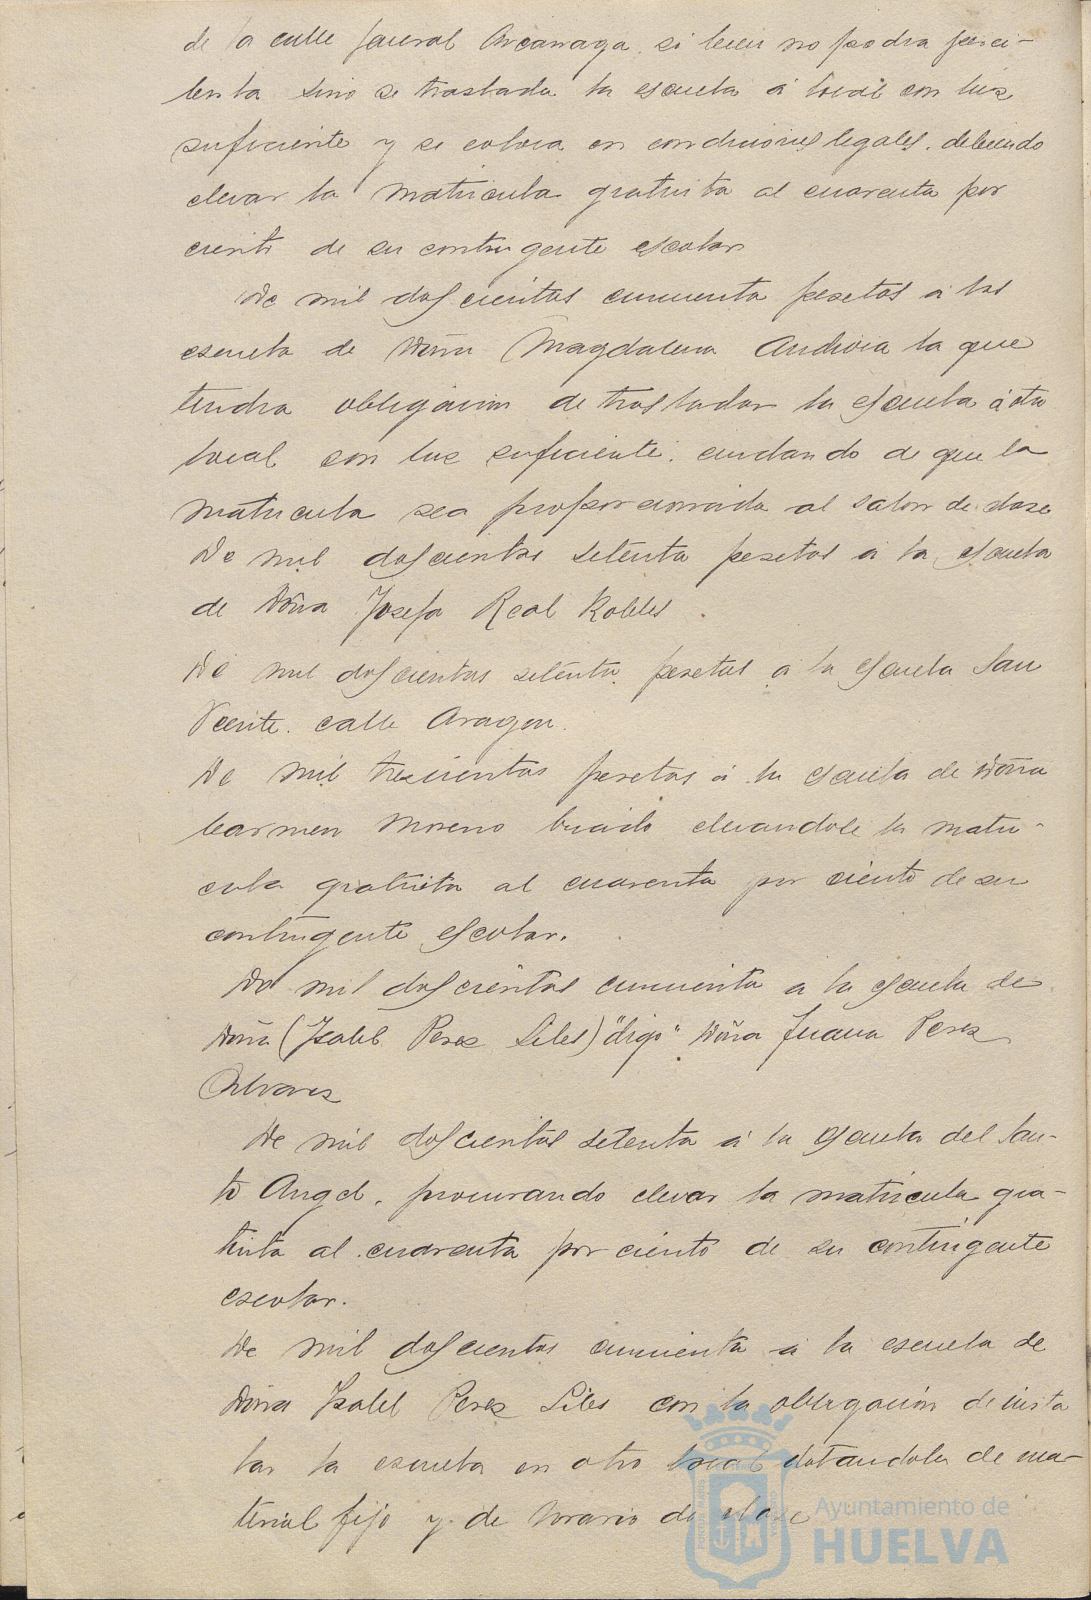 de la calle General Arcarraga, si bien no podra perci-
birla sino se traslada la escuela á local con luz
suficiente y se coloca en condiciones legales, debiendo
elevar la matricula gratuita al cuarenta por
ciento de su contingente escolar
De mil doscientas cincuenta pesetas á las
escuela de Doña Magdalena la que
tendra obligacion de trasladar la escuela á otro
local con luz suficiente, cuidando de que la
matricula sea proporcionada al salon de clase
De mil doscientas setenta pesetas á la escuela
de Doña Josefa Real Robles
De mil doscientas setenta pesetas á la escuela San
Vicente, calle Aragon.
De mil trescientas pesetas á la escuela de Doña
Carmen Moreno elevandole la matri-
cula gratuita al cuarenta por ciento de su
contingente escolar.
De mil doscientas cincuenta á la escuela de
Doña (Isabel Perez Siles) "digo" Doña Juana Perez
Alvarez
De mil doscientas setenta á la escuela del San-
to Angel, procurando elevar la matricula gra-
tuita al cuarenta por ciento de su contingente
escolar.
De mil doscientas cincuenta á la escuela de
Doña Isabel Perez Siles con la obligación de insta
lar la escuela en otro local dotandola de ma-
terial fijo y de horario de clase
Ayuntamiento de
HUELVA